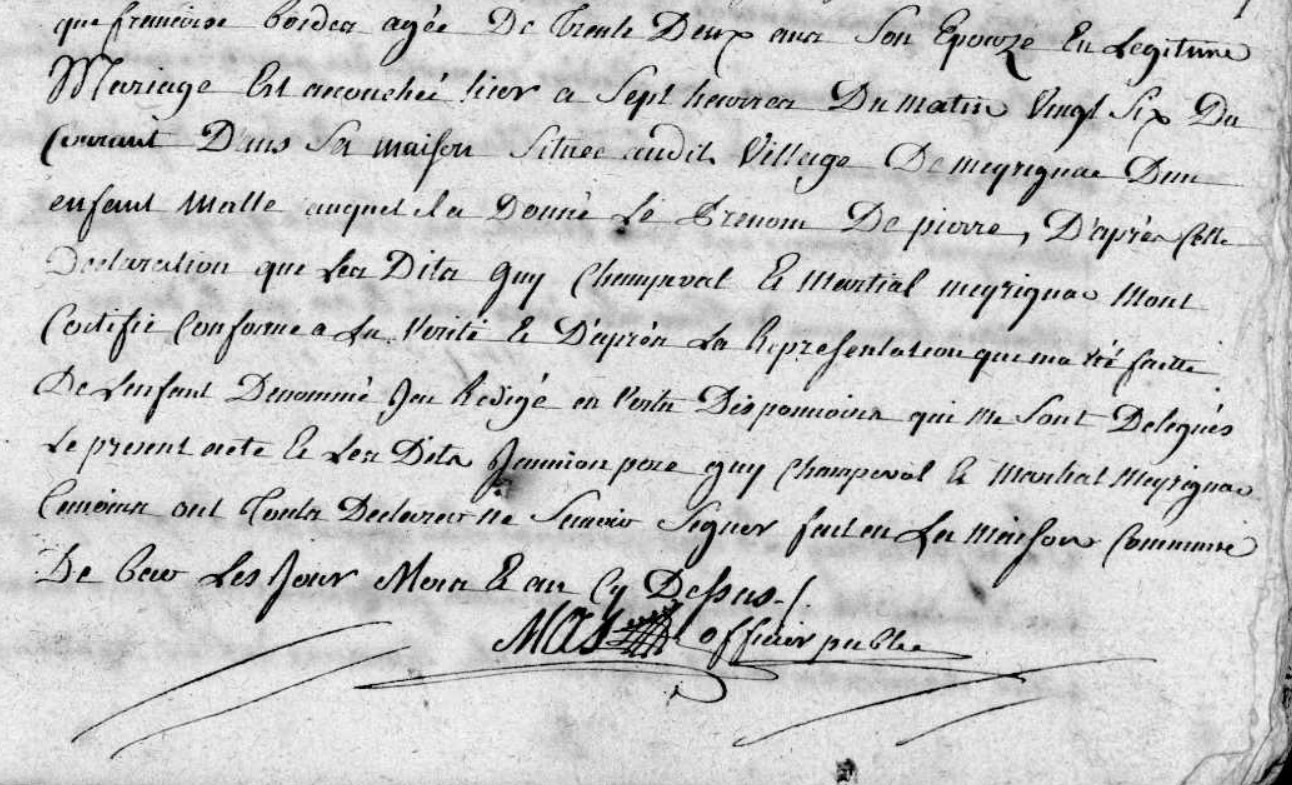 que francoise bordes agée De trente Deux ans Son Epouze En Legitime
Mariage Est acouchée hier a Sept heurres Du matin Vingt Six Du
Courant Dans Sa maison Situee audit Village De meyrignac Dun
enfant malle auquel il a Donné Le Prenom De pierre, D'après Cette
Declaration que Les Dits guy Champeval Et Martial meyrignac Mont
Certifié Conforme a La Verité Et D'après La Representation qui ma été faitte
De Lenfant Denommé Jai Redigé en Vertu Des pouvoirs qui me Sont Delegués
Le present acte Et Les Dits pere guy Champeval Et Martial Meyrignac
temoins ont touts Declarer ne Scavoir Signer fait en La maison Commune
De Les Jour Mois Et an Cy Dessus./.
MAS officier public